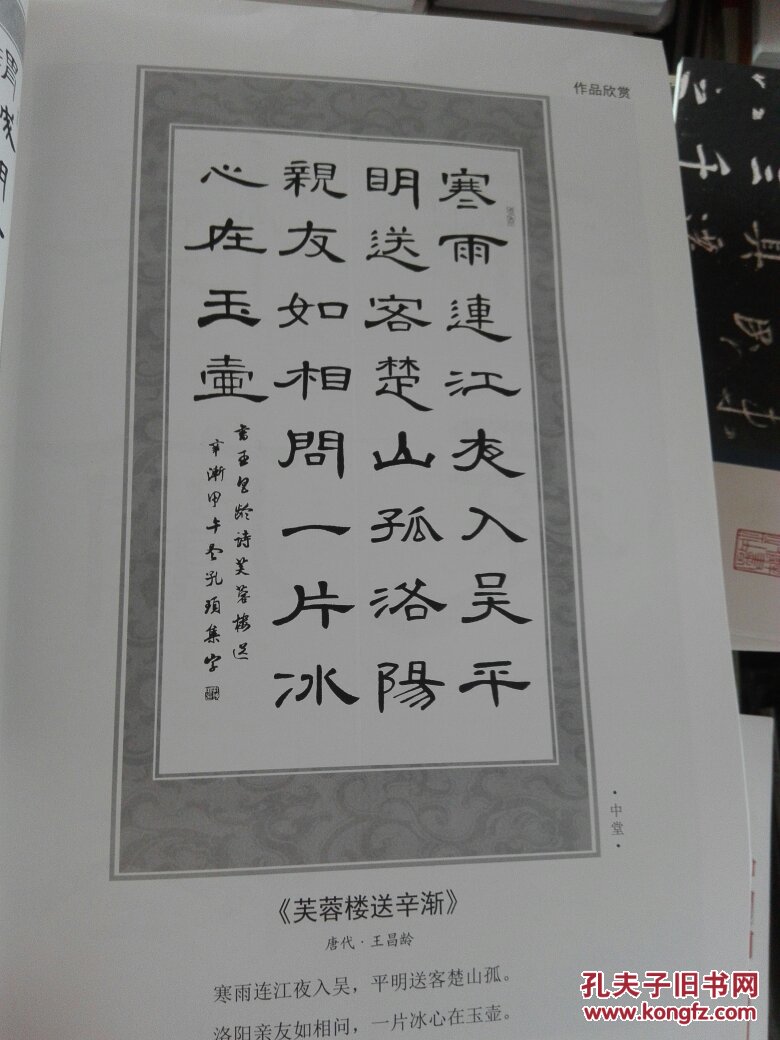 作品欣赏
寒雨連江夜入吴平
明送客楚山孤洛陽
親友如相問一片冰
心在玉壷
書王昌龄詩芙蓉樓送
辛漸甲午冬孔頊集字
·中堂·
《芙蓉楼送辛渐》
唐代·王昌龄
寒雨连江夜入吴，平明送客楚山孤。
洛阳亲友如相问，一片冰心在玉壶。
孔夫子旧书网
www.kongfz.com